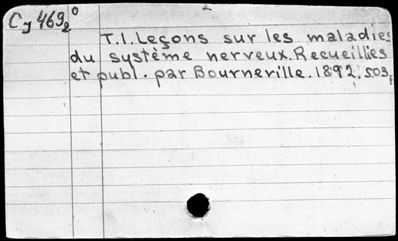 Cy 469₂⁰
T.I. Leçons sur les maladies
du système nerveux. Recueillies
et publ. par Bourneville. 1892. 503